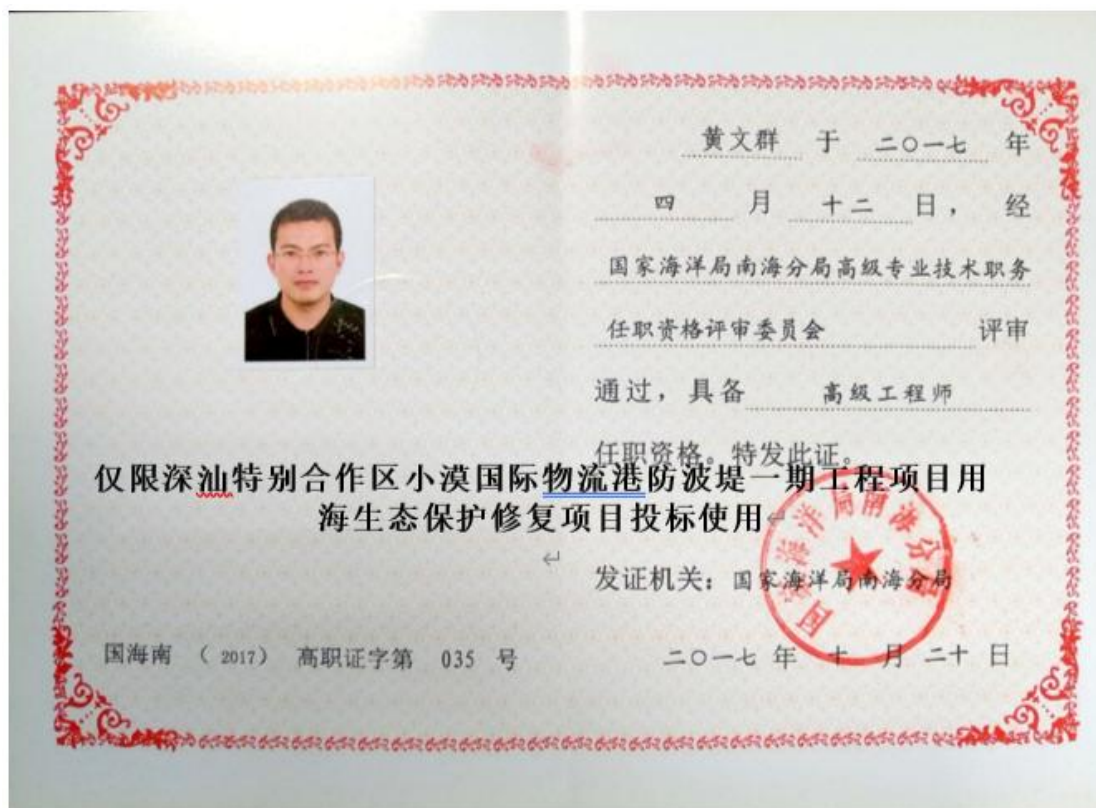 黄文群 于 二〇一七 年
四 月 十二 日， 经
国家海洋局南海分局高级专业技术职务
任职资格评审委员会 评审
通过，具备 高级工程师
任职资格。特发此证。
仅限深汕特别合作区小漠国际物流港防波堤一期工程项目用
海生态保护修复项目投标使用
国家海洋局南海分局
发证机关：国家海洋局南海分局
国海南 （ 2017） 高职证字第 035 号
二〇一七 年 十 月 二十 日